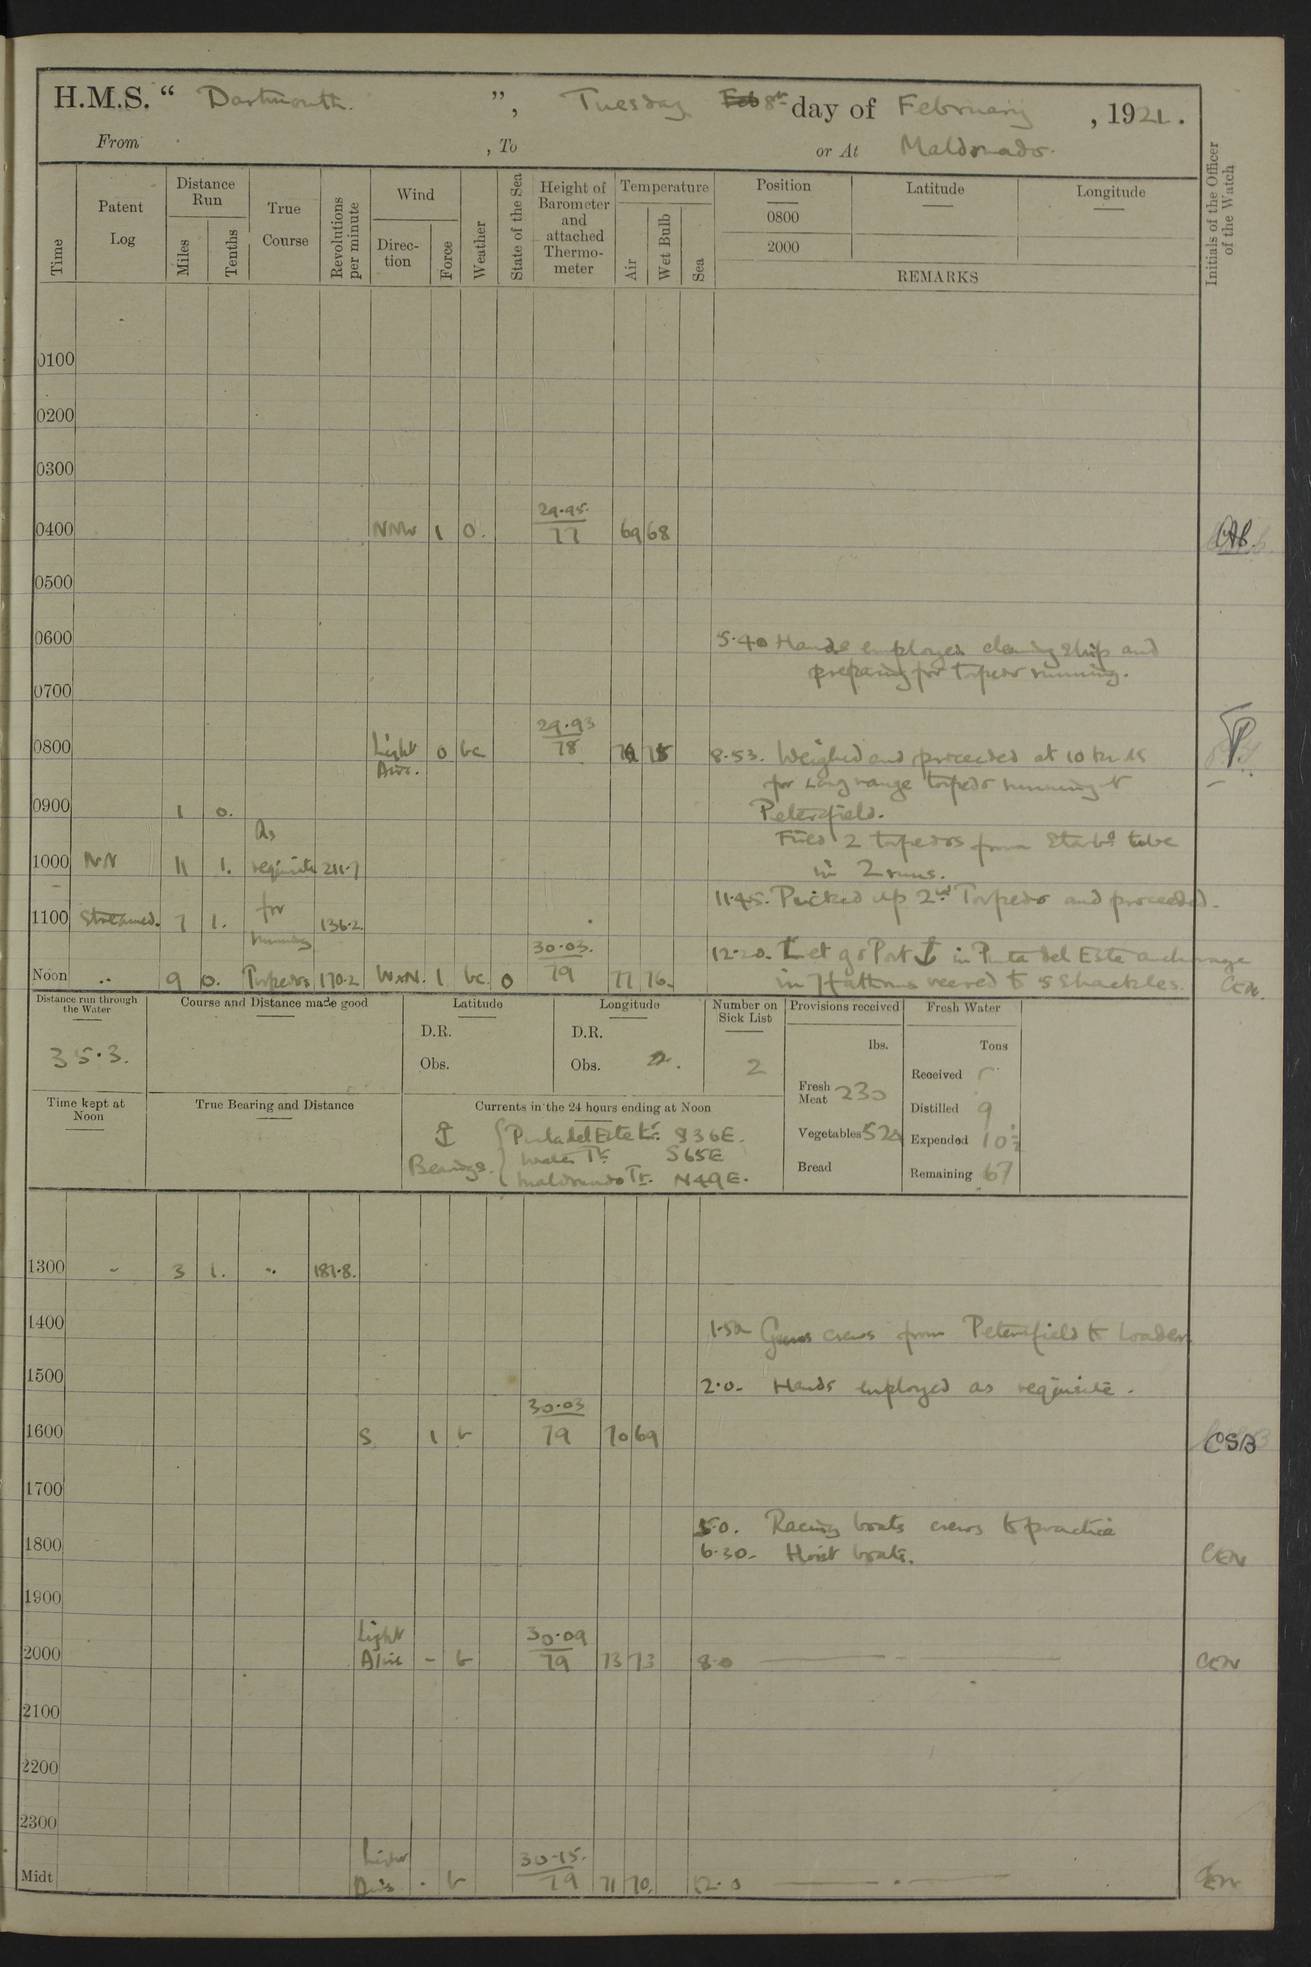 H.M.S. “ Dartmouth. ”, Tuesday 8th day of February, 1921.
From , To or At Maldonado.
Initials of the Officer of the Watch
Time
Patent Log
Distance Run
Miles
Tenths
True Course
Revolutions per minute
Wind
Direc-tion
Force
Weather
State of the Sea
Height of Barometer and attached Thermo-meter
Temperature
Air
Wet Bulb
Sea
Position Latitude Longitude
0800
2000
REMARKS
0100
0200
0300
29.95.
0400 NNW 1 o. 77 69 68
0500
0600 5.40 Hands employed cleaning ship and
preparing for torpedo running.
0700
29.93
0800 Light Airs. 0 bc 78 8.53. Weighed and proceeded at 10 kts
for long range torpedo running to
0900 1 0. Petersfield.
As Fired 2 torpedos from Starbd tube
1000 11 1. requisite 211.7 in 2 runs.
11.45. Picked up 2nd Torpedo and proceeded.
1100 Streamed. 7 1. for 136.2
running 30.03. 12.20. Let go Port in Punta del Este anchorage
Noon .. 9 0. Torpedos 170.2 WxN. 1 bc 0 79 77 76. in 7 fathoms veered to 5 Shackles. CEN.
Distance run through the Water
35.3.
Course and Distance made good
Latitude
D.R.
Obs.
Longitude
D.R.
Obs.
Number on Sick List
2
Provisions received
lbs.
Fresh Meat 230
Vegetables
Bread
Fresh Water
Tons
Received
Distilled 9
Expended 10½
Remaining 67
Time kept at Noon
True Bearing and Distance
Currents in the 24 hours ending at Noon
Bearings. Punta del Este Lt. S36E.
Water Tr. S65E
Maldonado Tr. N49E.
1300 3 1. .. 181.8.
1400 1.50 Guns crews from Petersfield to Loader.
1500 2.0. Hands employed as requisite.
30.03
1600 S 1 b 79 70 69 CSB
1700
5.0. Racing boats crews to practice
1800 6.30. Hoist boats. CEN
1900
Light 30.09
2000 Airs - b 79 73 73 8.0 CEN
2100
2200
2300
Light 30.15.
Midt Airs . b 79 71 70. 12.0 CEN